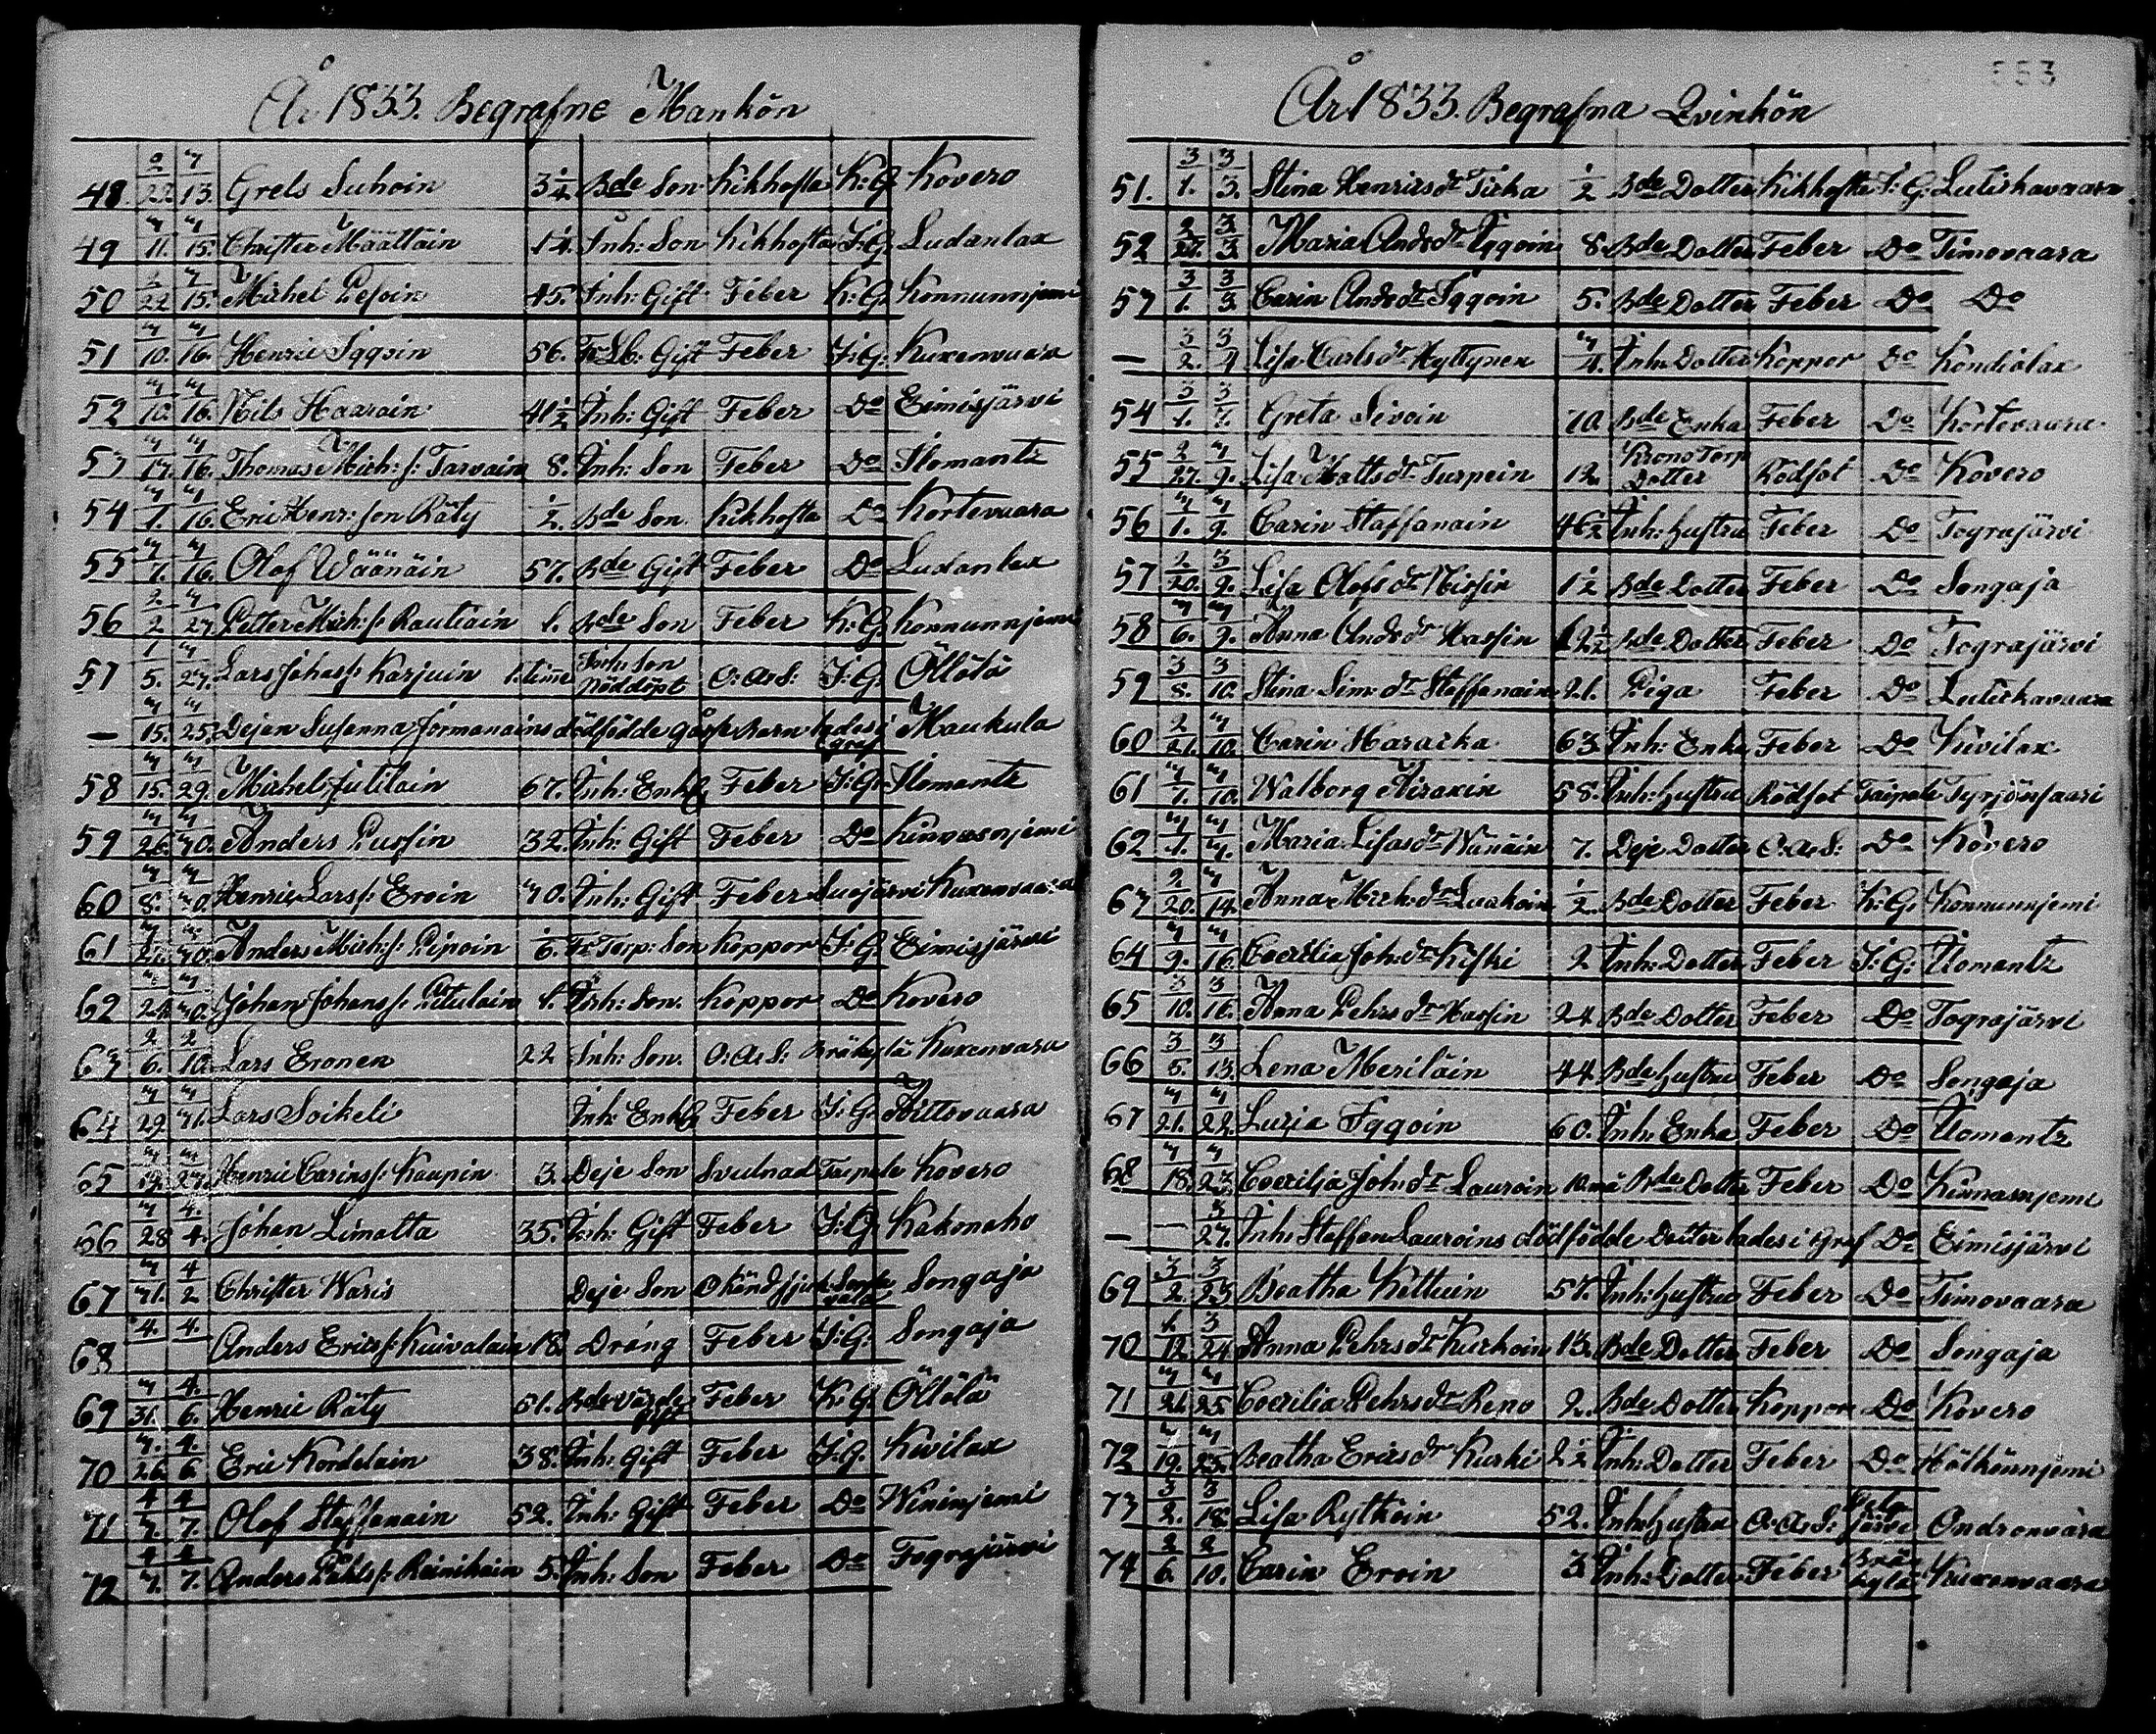 År 1833. Begrafne Mankön
48. 2/22. 3/13. Grels Suhoin 3 1/4 Bde Son Kikhosta K: G. Kovero
49 3/11. 3/15. Christer Määttäin 1 1/4. Inh: Son Kikhosta J: G. Ludanlax
50 2/22 3/15. Michel Pesoin 45. Inh: Gift Feber K: G. Konnunnjemi
51 3/10. 3/16. Henric Iggoin 56. Gift Feber J: G: Kuxenvaara
52 3/10. 3/16. Nils Haaroin 41 1/2 Inh: Gift Feber Do Eimisjärvi
53 3/13. 3/16. Thomas Mich: s: Tarvain 8. Inh: Son Feber Do Ilomantz
54 3/1. 3/16. Eric Henr: son Räty 1/2. Bde Son Kikhosta Do Kortevaara
55 3/7. 3/16. Olof Wäänäin 57. Bde Gift Feber Do Ludanlax
56 2/2 3/23 Petter Mich: s: Rautiain 1. Bde Son Feber K: G. Konnunnjemi
57 1/5. 3/23. Lars Johas s: Karjuin 1. time Inh: Son Nöddöpt O: A: S: J: G. Öllölä
— 3/15. 3/25. Dejan Susanna Jormanains dödfödde gåsse Barn lades i graf Maukula
58 3/15. 3/29. Michel Jutilain 67. Inh: Enkl Feber J: G. Ilomantz
59 3/26. 3/30. Anders Pussin 32. Inh: Gift Feber Do Kinnasnjemi
60 3/8. 3/30. Henric Lars s: Eroin 30. Inh: Gift Feber Suojärvi Kuxenvaara
61 3/30. Anders Mich: s: Piipoin 1/6. Torp: Son Koppor J: G. Eimisjärvi
62 3/24. 3/30. Johan Johans s: Pitulain 1. Inh: Son. Koppor Do Kovero
63 2/6. 2/10. Lars Eronen 22 Inh: Son. O: A: S: Bräkylä Kuxenvara
64 3/29. 3/31. Lars Soikeli Inh: Enkl Feber J: G. Aittovaara
65 3/19. 3/23. Henric Carins s: Kaupin 3. Deje Son Svulnad Taipale Kovero
66 3/28 4/4. Johan Limatta 35. Inh: Gift Feber J: G. Kakonaho
67 3/31. 4/2 Christer Waris Deje Son Okänd sjuk Sonkajala Songaja
68 4. 4. Anders Erics s: Kuivalain 18. Dräng Feber J: G. Songaja
69 3/31. 4/6. Henric Räty 51. Bde Gift Feber K: G. Öllölä
70 3/26. 4/6. Eric Kordelain 38. Inh: Gift Feber J: G. Kivilax
71 4/3. 4/7. Olof Staffanain 52. Inh: Gift Feber Do Wininjemi
72 4/3. 4/7. Anders Påhls s: Reinikain 5. Inh: Son Feber Do Tograjärvi
År 1833. Begrafna Qvinkön
51. 3/1. 3/3. Stina Henricsdr Sirka 1/2 Bde Dotter Kikhosta J: G. Lutiskavaara
52 2/27. 3/3. Maria Andsdr Iggoin 8. Bde Dotter Feber Do Timovaara
53 3/1. 3/3. Carin Andsdr Iggoin 5. Bde Dotter Feber Do Do
— 3/2. 3/4 Lisa Carlsdr Hyttynen 3/4. Inh: Dotter Koppor Do Kondiolax
54 3/1. 3/7. Greta Sivoin 70. Bde Enka Feber Do Kortevaara
55 2/27. 3/9. Lisa Mattsdr Turpein 12. Krono Torp Dotter Rödsot Do Kovero
56 3/1. 3/9. Carin Staffanain 46 1/2 Inh: hustru Feber Do Tograjärvi
57 2/20. 3/9. Lisa Olofsdr Nissin 1 1/2 Bde Dotter Feber Do Songaja
58 3/6. 3/9. Anna Andsdr Hassin 12 1/2 Bde Dotter Feber Do Tograjärvi
59 3/8. 3/10. Stina Sim: dr Staffanain 21. Piga Feber Do Lutiskavaara
60 2/21. 3/10. Carin Haraxka 63. Inh: Enka Feber Do Kivilax
61 3/1. 3/10. Walborg Hiraxin 58. Inh: hustru Rödsot Taipale Tyrjönsaari
62 3/1. Maria Lisasdr Wänäin 7. Deje Dotter O: A: S: Do Kovero
63 2/20. 3/14. Anna Mich: dr Luukoin 1/2. Bde Dotter Feber K: G. Konnunnjemi
64 3/9. 3/16. Coecilia Joh: dr Kiski 2 Inh: Dotter Feber J: G: Ilomantz
65 3/10. 3/16. Anna Pehrsdr Hassin 24 Bde Dotter Feber Do Tograjärvi
66 3/5. 3/13. Lena Meriläin 44. Bde hustru Feber Do Songaja
67 3/21. 3/22. Luzia Iggoin 60. Inh: Enka Feber Do Ilomantz
68 3/18. 3/23. Coecilja Joh: dr Lauroin 10 må Bde Dotter Feber Do Kinnasnjemi
— — 3/27. Inh: Staffan Lauroins dödfödde Dotter lades i Graf Do Eimisjärvi
69 3/2. 3/23 Beatha Kettuin 57. Inh: hustru Feber Do Timovaara
70 1/12. 3/24 Anna Pehrsdr Kurkoin 13. Bde Dotter Feber Do Songaja
71 3/21. 3/25. Coecilia Pehrsdr Reno 2. Bde Dotter Koppor Do Kovero
72 3/19. 3/25. Beatha Ericsdr Kurki 2 1/2 Inh: Dotter Feber Do Hölkönnjemi
73 3/2. 3/18. Lisa Rytkoin 52. Inh: hustru O: A: S: Pelgjärvi Ondronvara
74 2/6. 2/10. Carin Eroin 3 Inh: Dotter Feber Bräkylä Kuxenvaara